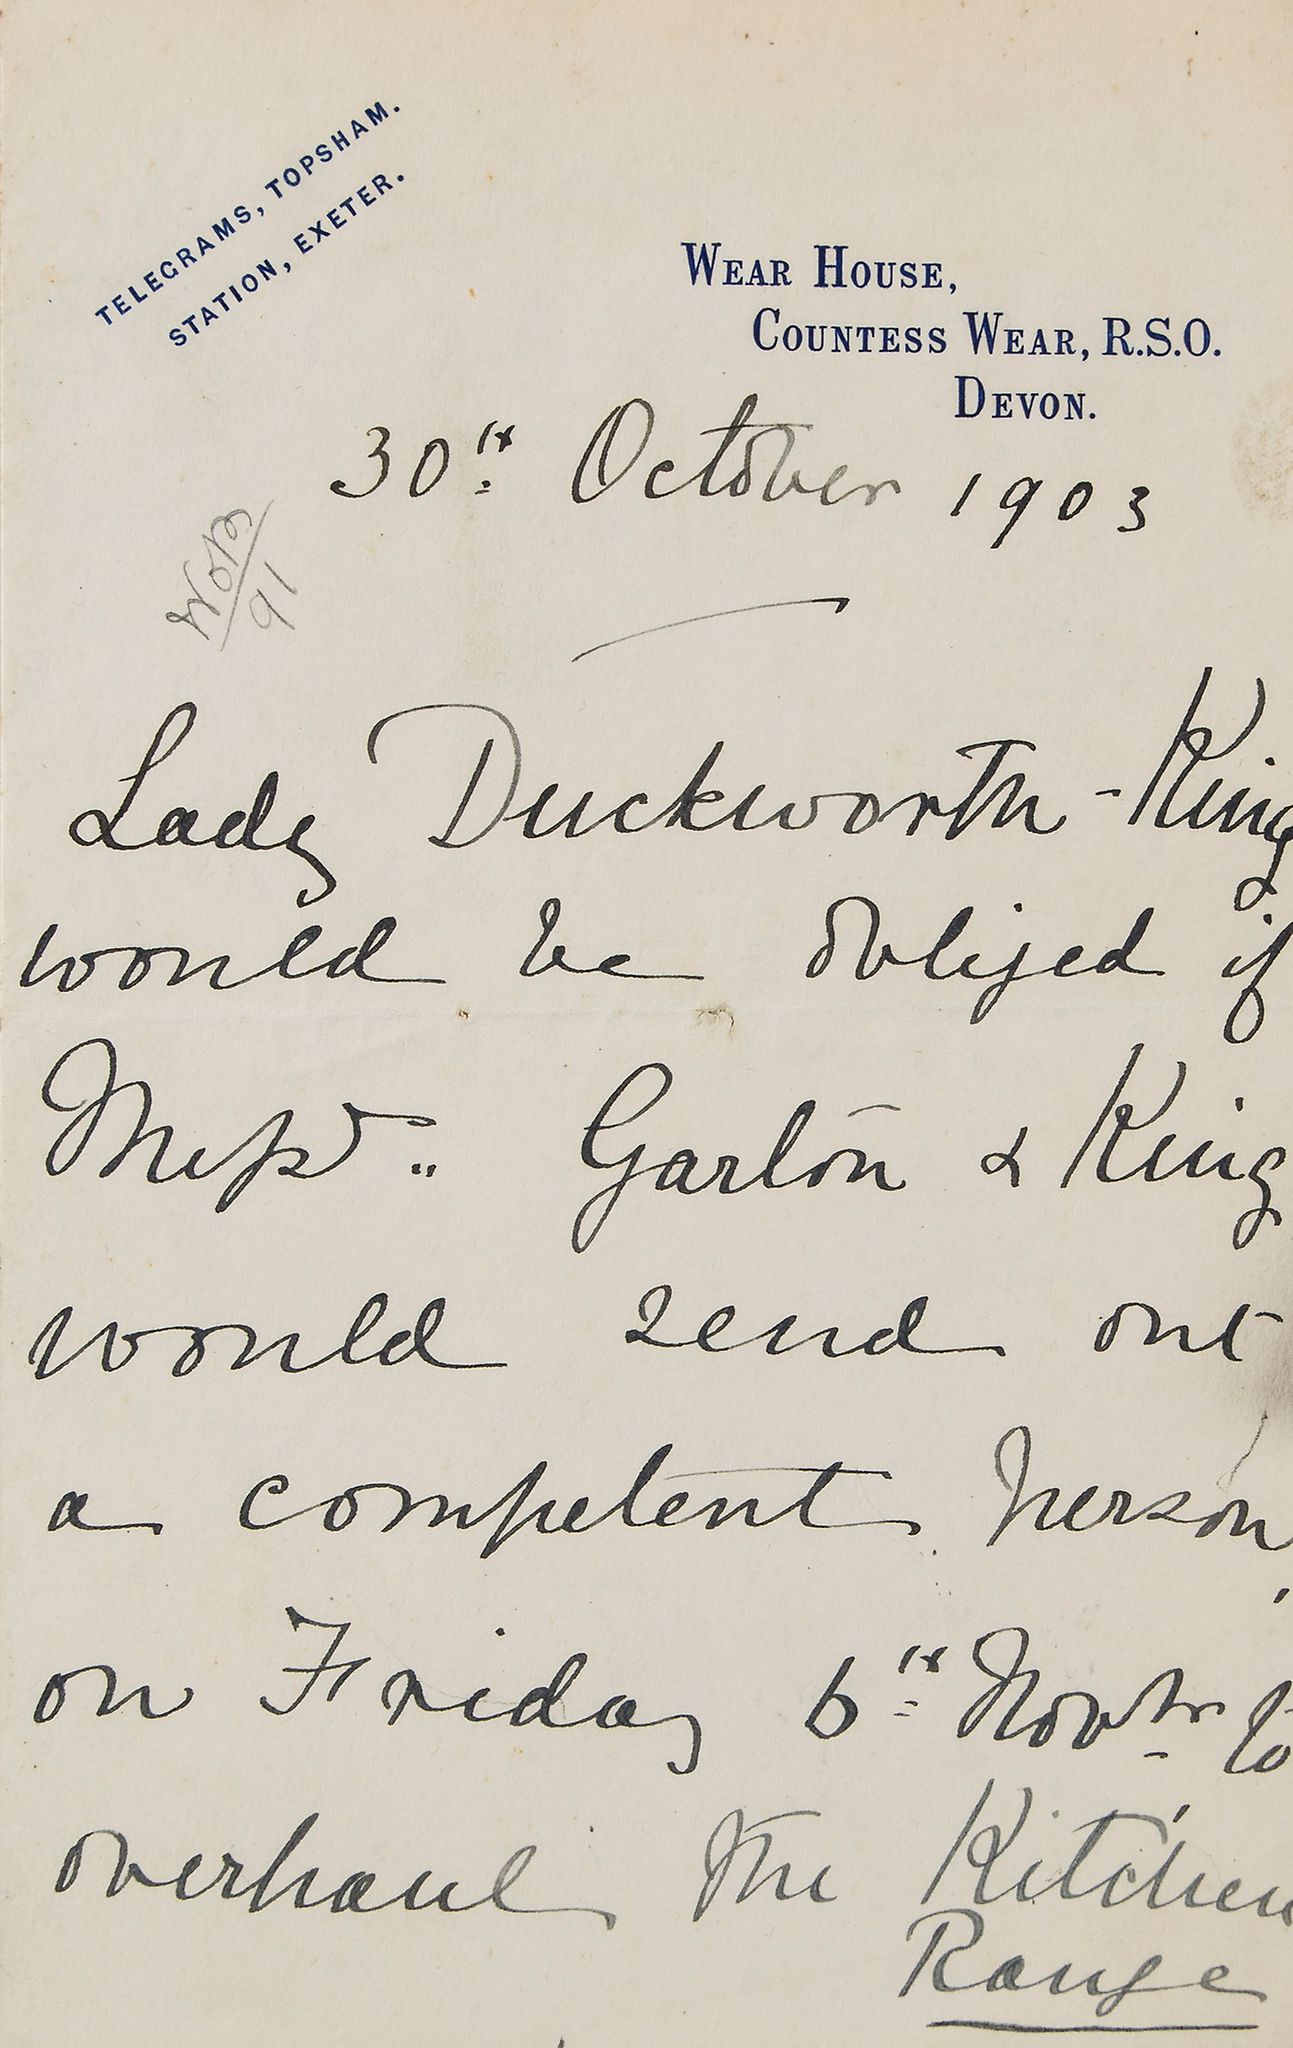 TELEGRAMS, TOPSHAM.
STATION, EXETER.
WEAR HOUSE,
COUNTESS WEAR, R.S.O.
DEVON.
30th October 1903
91
Lady Duckworth-King
would be obliged if
Messrs. Garton & King
would send out
a competent person,
on Friday 6th Novbr to
overhaul the Kitchen
Range